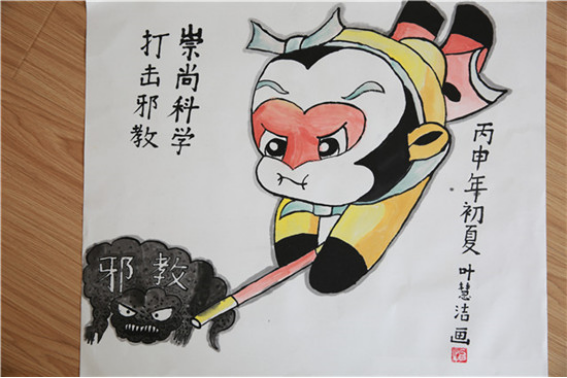 崇尚科学
打击邪教
丙申年初夏
叶慧洁画
邪教